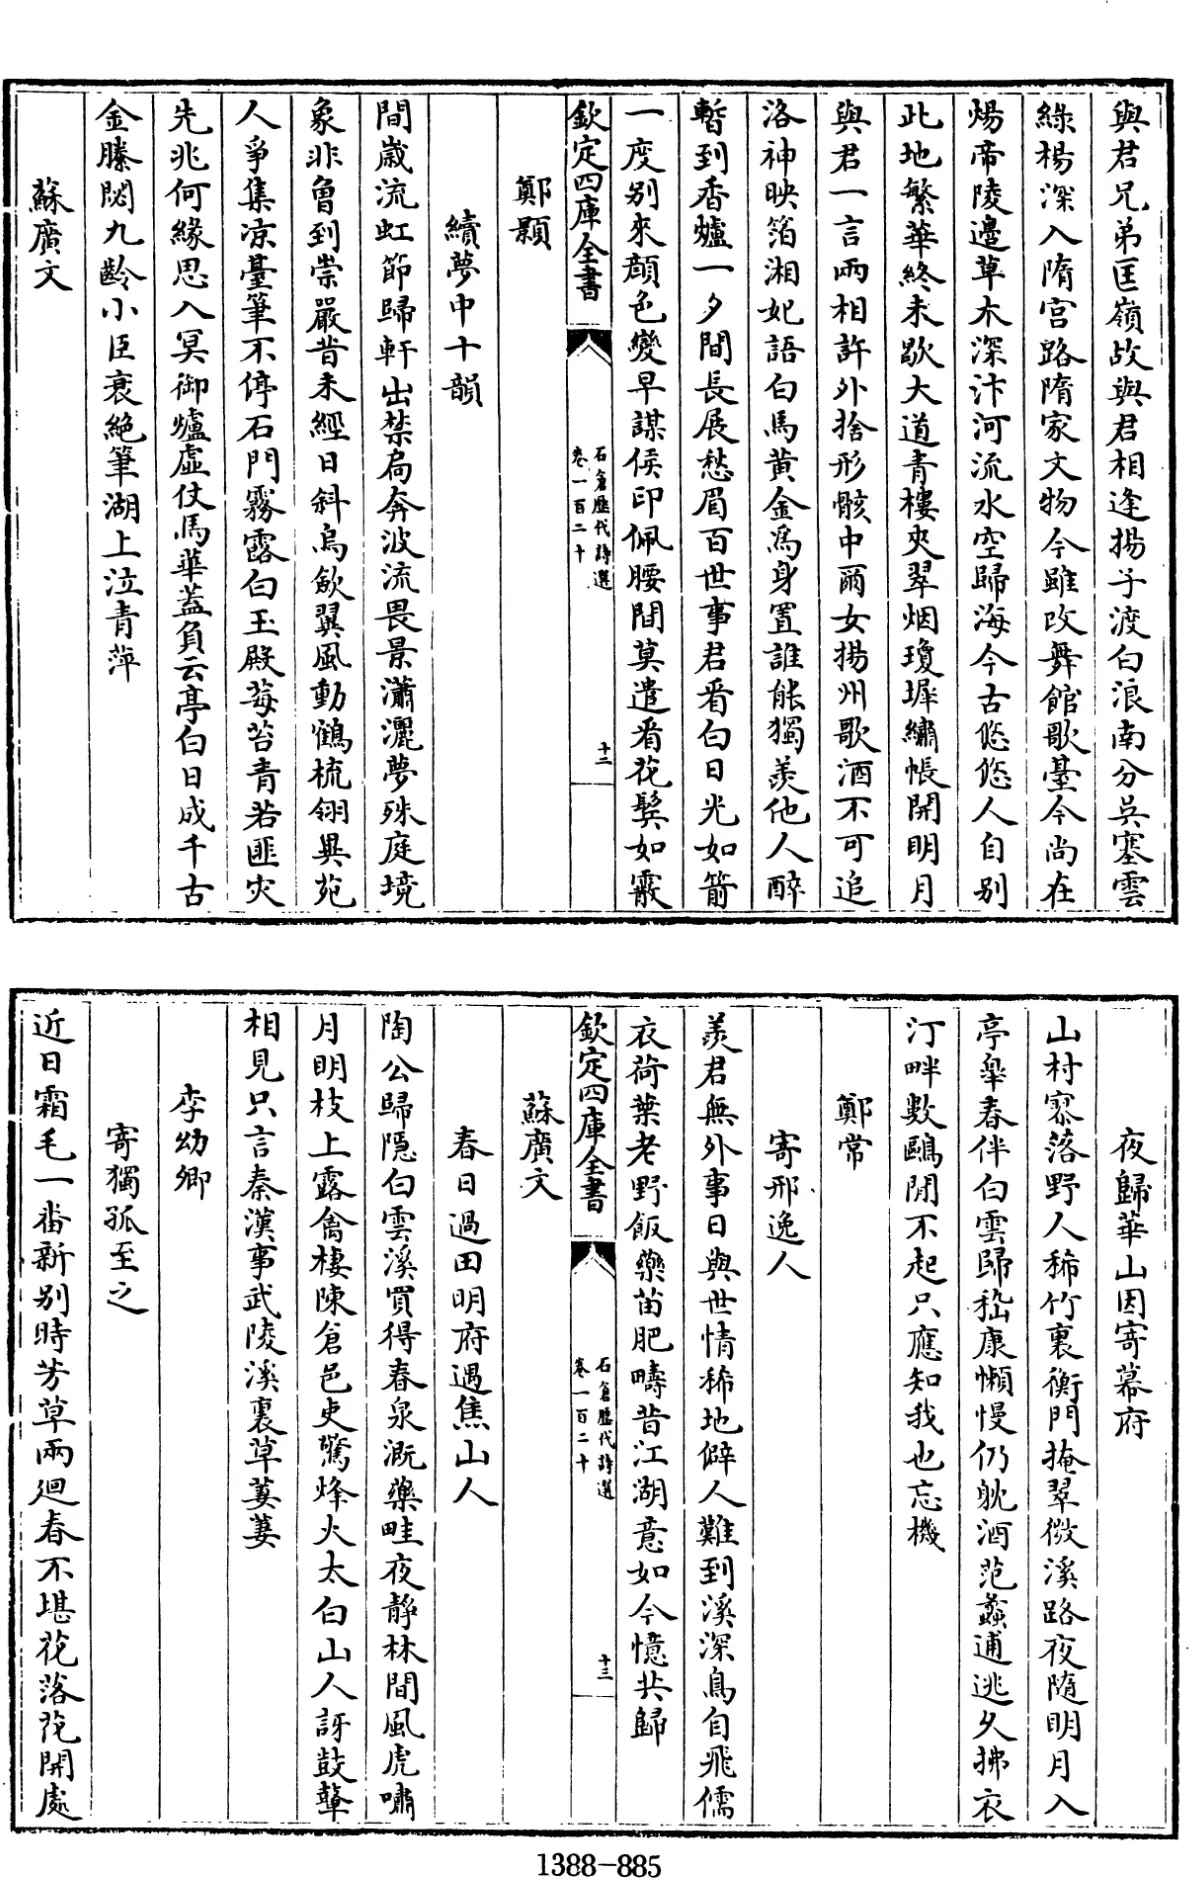 與君兄弟匡嶺故與君相逢揚子渡白浪南分吳塞雲
綠楊深入隋宫路隋家文物今雖改舞館歌臺今尚在
煬帝陵邊草木深汴河流水空歸海今古悠悠人自别
此地繁華終未歇大道青樓夾翠烟瓊墀繡帳開明月
與君一言兩相許外捨形骸中爾女揚州歌酒不可追
洛神映箔湘妃語白馬黄金為身置誰能獨羨他人醉
暫到香爐一夕間長展愁眉百世事君看白日光如箭
一度别來顔色變早謀侯印佩腰間莫遣看花鬂如霰
欽定四庫全書
石倉歷代詩選
卷一百二十
十二
鄭顥
續夢中十韻
間歲流虹節歸軒出禁扃奔波流畏景瀟灑夢殊庭境
象非曾到崇嚴昔未經日斜烏歛翼風動鶴梳翎異苑
人爭集凉臺筆不停石門霧露白玉殿莓苔青若匪灾
先兆何緣思入冥御爐虛仗馬華蓋負云亭白日成千古
金縢閟九齡小臣哀絶筆湖上泣青萍
蘇廣文
夜歸華山因寄幕府
山村寥落野人稀竹裏衡門掩翠微溪路夜隨明月入
亭臯春伴白雲歸嵇康懶慢仍躭酒范蠡逋逃久拂衣
汀畔數鷗閒不起只應知我也忘機
鄭常
寄邢逸人
羨君無外事日與世情稀地僻人難到溪深鳥自飛儒
衣荷葉老野飯藥苗肥疇昔江湖意如今憶共歸
欽定四庫全書
石倉歷代詩選
卷一百二十
十三
蘇廣文
春日過田明府遇焦山人
陶公歸隱白雲溪買得春泉溉藥畦夜靜林間風虎嘯
月明枝上露禽棲陳倉邑吏驚烽火太白山人訝鼓鼙
相見只言秦漢事武陵溪裏草萋萋
李幼卿
寄獨孤至之
近日霜毛一畨新别時芳草兩廻春不堪花落花開處
1388-885